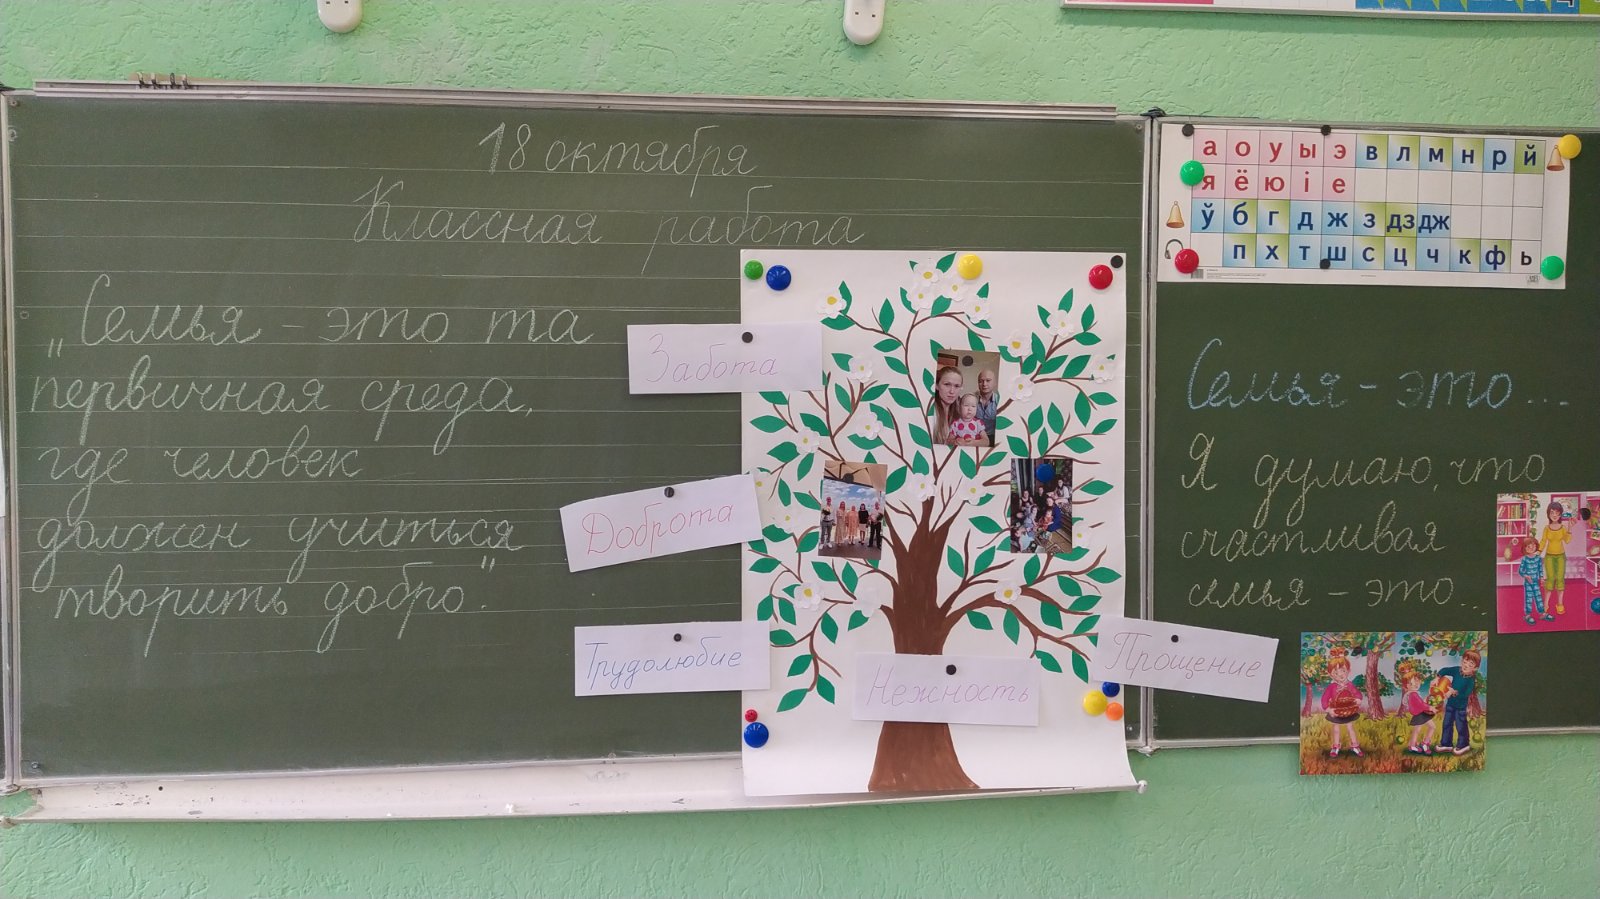 18 октября
Классная работа
„Семья – это та
первичная среда,
где человек
должен учиться
творить добро".
Забота
Доброта
Трудолюбие
Нежность
Прощение
а о у ы э в л м н р й
я ё ю і е
ў б г д ж з дз дж
п х т ш с ц ч к ф ь
Семья – это...
Я думаю, что
счастливая
семья – это...